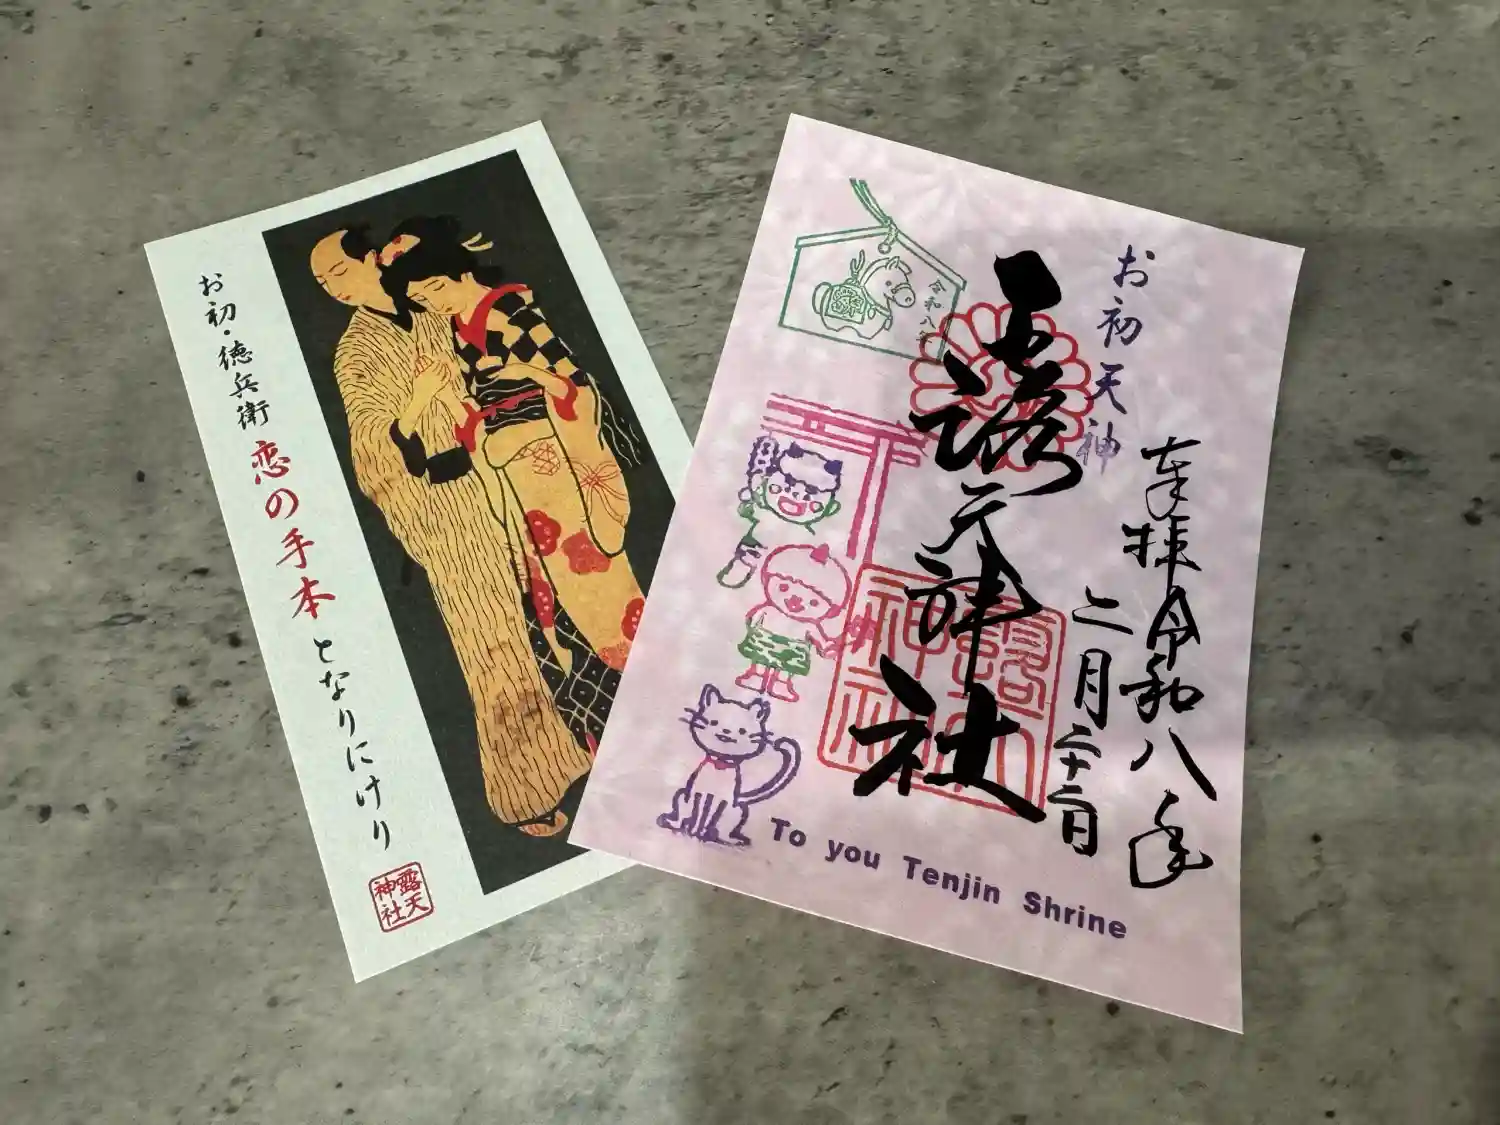 お初・徳兵衛 恋の手本となりにけり
露天
神社
令和八年
お初天神
奉拝 令和八年
二月二十二日
露天神社
露天
神社
To you Tenjin Shrine